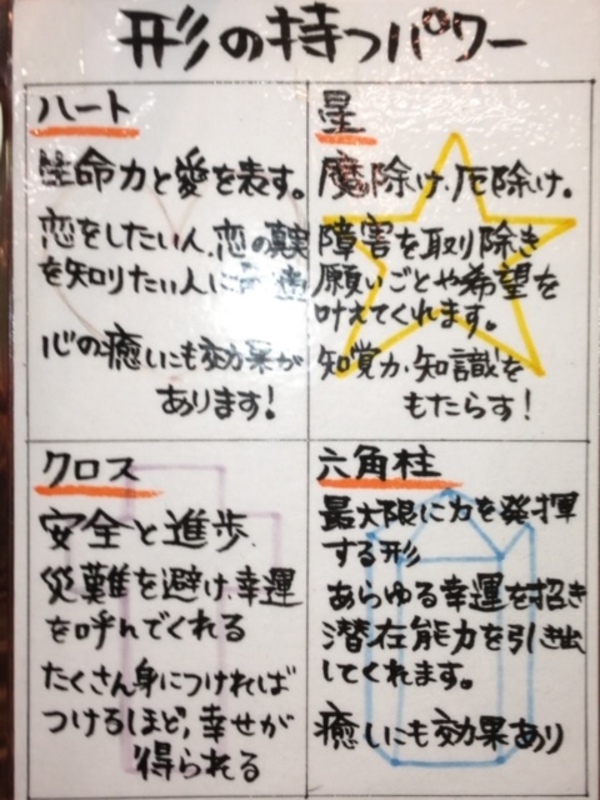 形の持つパワー
ハート
生命力と愛を表す。
恋をしたい人、恋の真実
を知りたい人に
心の癒しにも効果が
あります!
星
魔除け・厄除け。
障害を取り除き
願いごとや希望を
叶えてくれます。
知覚力・知識を
もたらす!
クロス
安全と進歩
災難を避け、幸運
を呼んでくれる
たくさん身につければ
つけるほど、幸せが
得られる
六角柱
最大限に力を発揮
する形
あらゆる幸運を招き
潜在能力を引き出
してくれます。
癒しにも効果あり